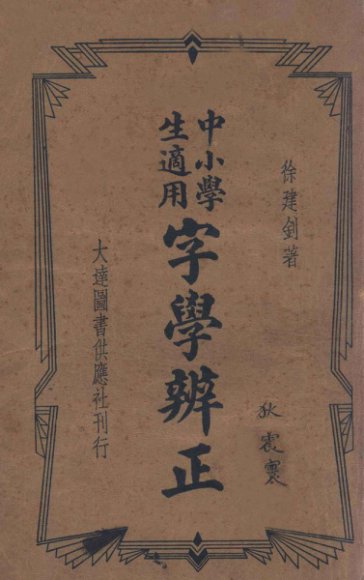 徐建釗著
中小學
生適用
字學辨正
大達圖書供應社刊行